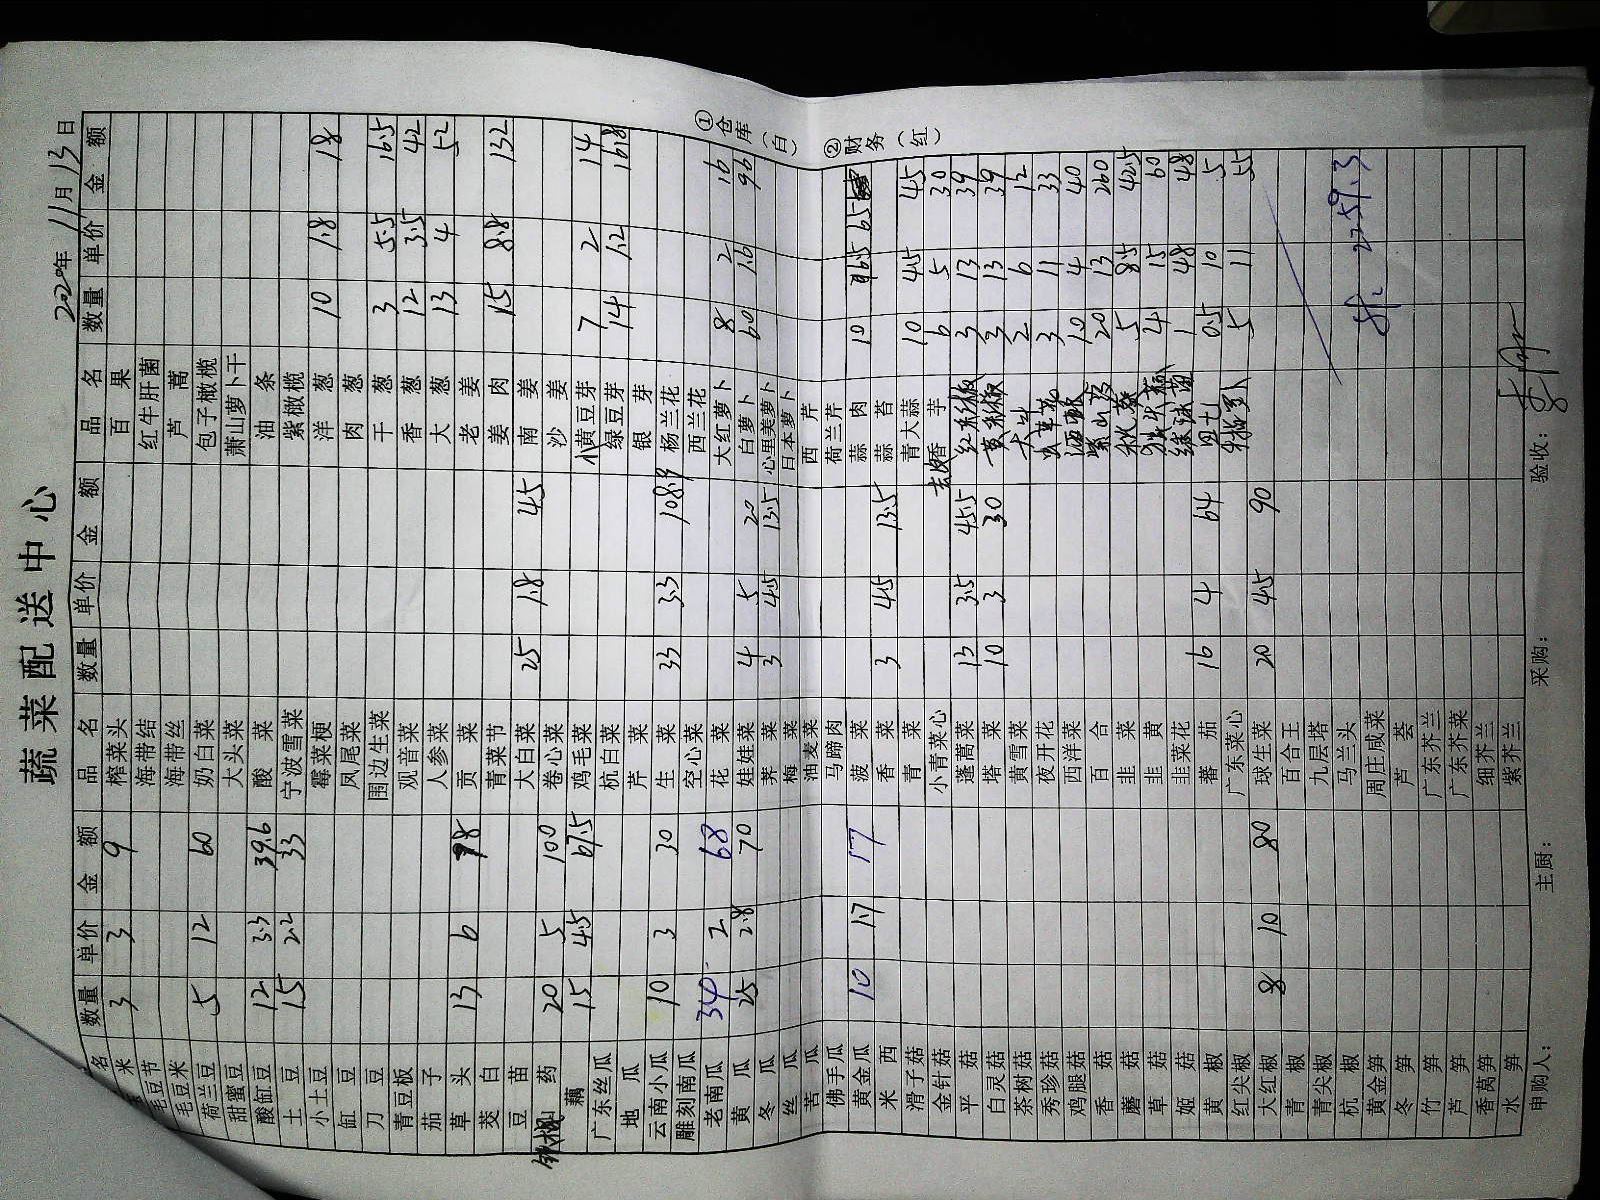 蔬菜配送中心
2020年 11月 13日
名 数量 单价 金额 品名 数量 单价 金额 品名 数量 单价 金额
米 3 3 9 榨菜头 百果
毛豆节 海带结 红牛肝菌
毛豆米 海带丝 芦蒿
荷兰豆 5 12 60 奶白菜 包子橄榄
甜蜜豆 大头菜 萧山萝卜干
酸缸豆 12 3.3 39.6 酸菜 油条
土豆 15 2.2 33 宁波雪菜 紫橄榄
小土豆 霉菜梗 洋葱 10 1.8 18
缸豆 凤尾菜 肉葱
刀豆 围边生菜 干葱 3 5.5 16.5
青豆板 观音菜 香葱 12 3.5 42
茄子 人参菜 大葱 13 4 52
草头 13 6 78 贡菜 老姜
茭白 青菜节 姜肉 15 8.8 132
豆苗 大白菜 25 1.8 45 南姜
药 20 5 100 卷心菜 沙姜
藕 15 4.5 67.5 鸡毛菜 小黄豆芽 7 2 14
广东丝瓜 杭白菜 绿豆芽 14 1.2 16.8
地瓜 芹菜 银芽
云南小瓜 10 3 30 生菜 33 3.3 108.9 杨兰花
雕刻南瓜 空心菜 西兰花
老南瓜 34 2 68 花菜 大红萝卜 8 2 16
黄瓜 25 2.8 70 娃娃菜 4 5 20 白萝卜 60 1.6 96
冬瓜 荠菜 3 4.5 13.5 心里美萝卜
丝瓜 梅菜 日本萝卜
苦瓜 油麦菜 西芹
佛手瓜 马蹄肉 荷兰芹
黄金瓜 10 1.7 17 菠菜 蒜肉 10 6.5 65
米西 香菜 3 4.5 13.5 蒜苔
滑子菇 青菜 青大蒜 10 4.5 45
金针菇 小青菜心 去皮香芋 6 5 30
平菇 蓬蒿菜 13 3.5 45.5 红彩椒 3 13 39
白灵菇 塔菜 10 3 30 黄彩椒 3 13 39
茶树菇 黄雪菜 2 6 12
秀珍菇 夜开花 虫草花 3 11 33
鸡腿菇 西洋菜 10 4 40
香菇 百合 紫山药 20 13 260
蘑菇 韭菜 秋葵 5 8.5 42.5
草菇 韭黄 4 15 60
姬菇 韭菜花 1 48 48
黄椒 蕃茄 16 4 64 0.5 10 5
红尖椒 广东菜心 5 11 55
大红椒 8 10 80 球生菜 20 4.5 90
青椒 百合王
青尖椒 九层塔
杭椒 马兰头 2259.3
黄金笋 周庄咸菜
冬笋 芦荟
竹笋 广东芥兰
芦笋 广东芥菜
香莴笋 细芥兰
水笋 紫芥兰
申购人： 主厨： 采购： 验收：
①仓库（白）
②财务（红）